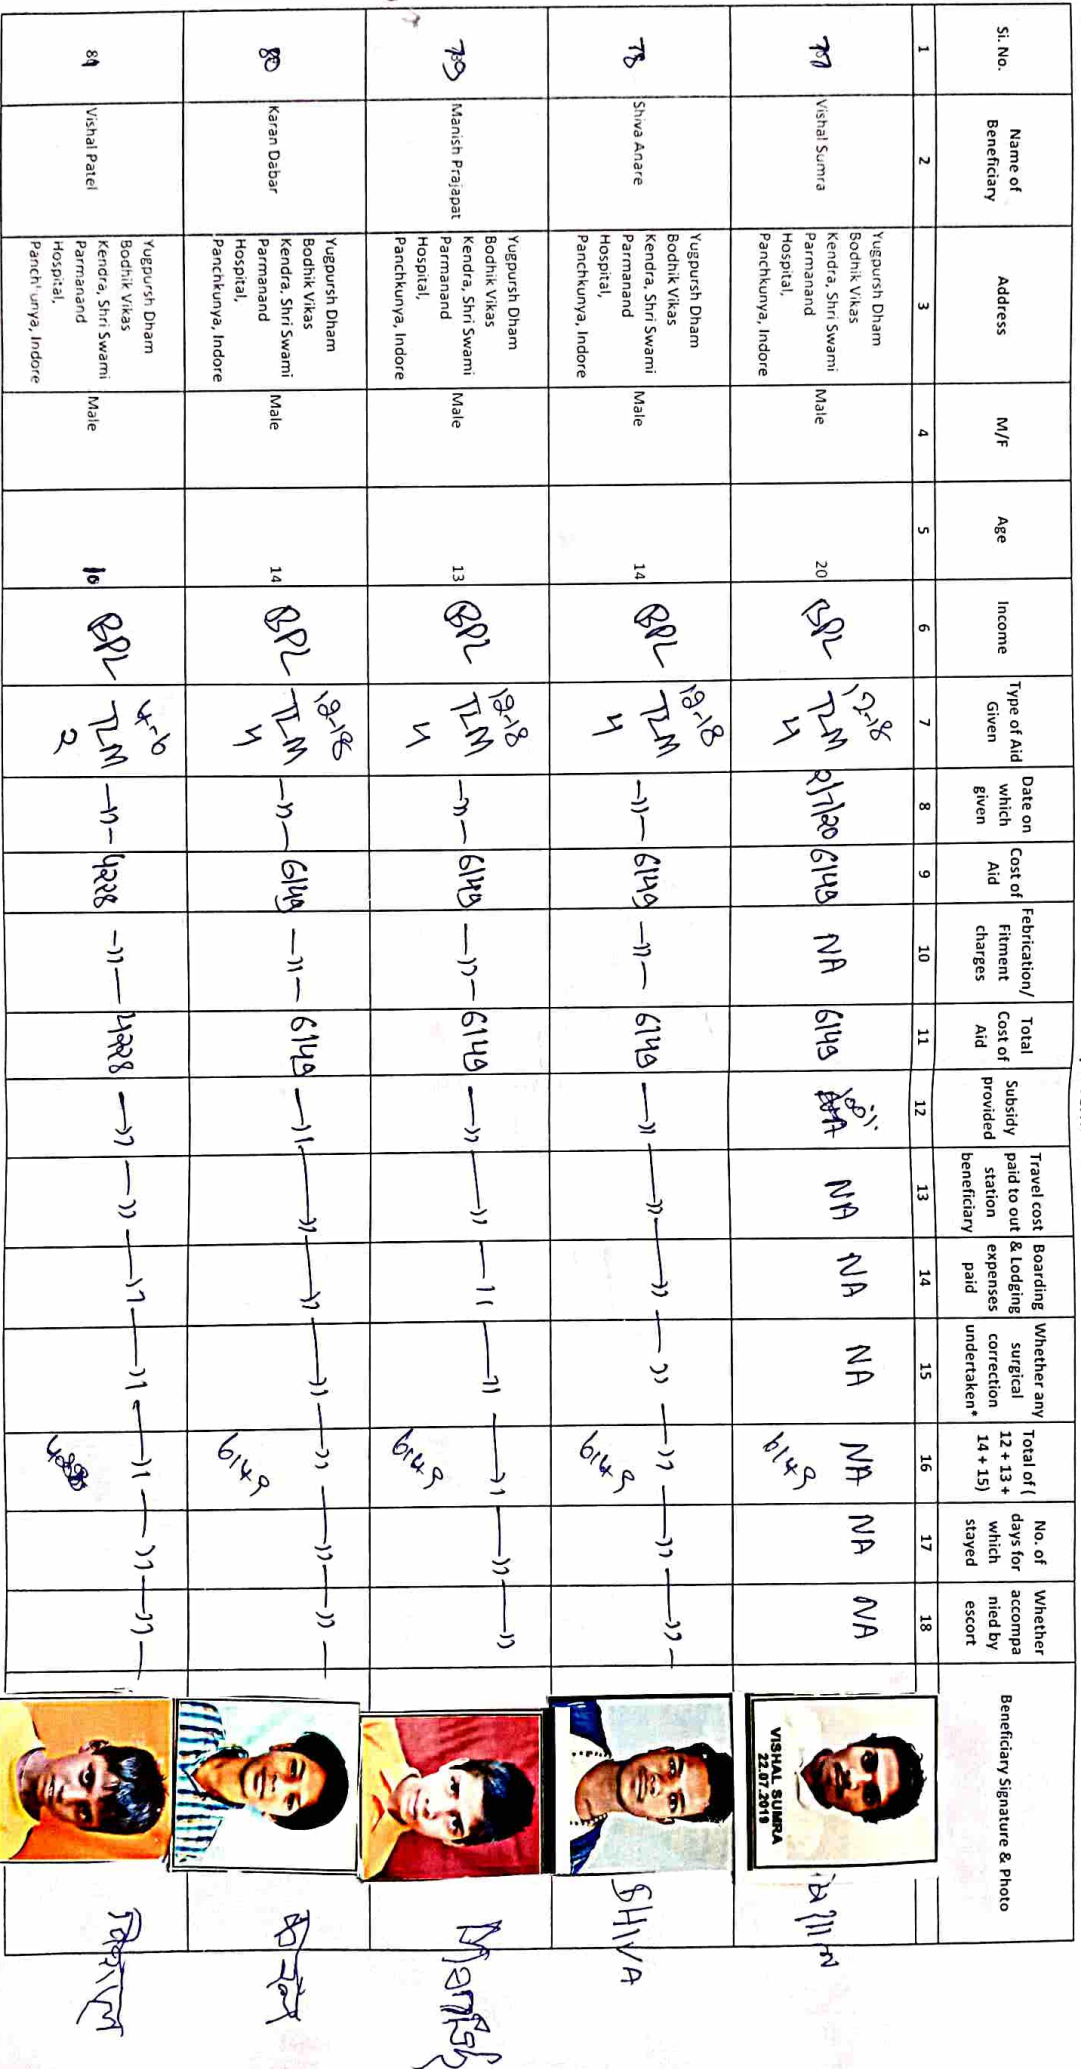 Si. No.
Name of
Beneficiary
Address
M/F
Age
Income
Type of Aid
Given
Date on
which
given
Cost of
Aid
Febrication/
Fitment
charges
Total
Cost of
Aid
Subsidy
provided
Travel cost
paid to out
station
beneficiary
Boarding
& Lodging
expenses
paid
Whether any
surgical
correction
undertaken*
Total of (
12 + 13 +
14 + 15)
No. of
days for
which
stayed
Whether
accompa
nied by
escort
Beneficiary Signature & Photo
1 2 3 4 5 6 7 8 9 10 11 12 13 14 15 16 17 18
77
Vishal Sumra
Yugpursh Dham
Bodhik Vikas
Kendra, Shri Swami
Parmanand
Hospital,
Panchkunya, Indore
Male
20
BPL
12-18
TLM
4
2/7/20
6149
NA
6149
100%
NA
NA
NA
NA
6149
NA
NA
VISHAL SUMRA
22.07.2019
78
Shiva Anare
Yugpursh Dham
Bodhik Vikas
Kendra, Shri Swami
Parmanand
Hospital,
Panchkunya, Indore
Male
14
BPL
12-18
TLM
4
—"—
6149
—"—
6149
—"—
—"—
—"—
—"—
—"—
6149
—"—
—"—
SHIVA
79
Manish Prajapat
Yugpursh Dham
Bodhik Vikas
Kendra, Shri Swami
Parmanand
Hospital,
Panchkunya, Indore
Male
13
BPL
12-18
TLM
4
—"—
6149
—"—
6149
—"—
—"—
—"—
—"—
—"—
6149
—"—
—"—
80
Karan Dabar
Yugpursh Dham
Bodhik Vikas
Kendra, Shri Swami
Parmanand
Hospital,
Panchkunya, Indore
Male
14
BPL
12-18
TLM
4
—"—
6149
—"—
6149
—"—
—"—
—"—
—"—
—"—
6149
—"—
—"—
करन
81
Vishal Patel
Yugpursh Dham
Bodhik Vikas
Kendra, Shri Swami
Parmanand
Hospital,
Panchkunya, Indore
Male
10
BPL
TLM
2
—"—
4228
—"—
4228
—"—
—"—
—"—
—"—
—"—
—"—
—"—
विशाल